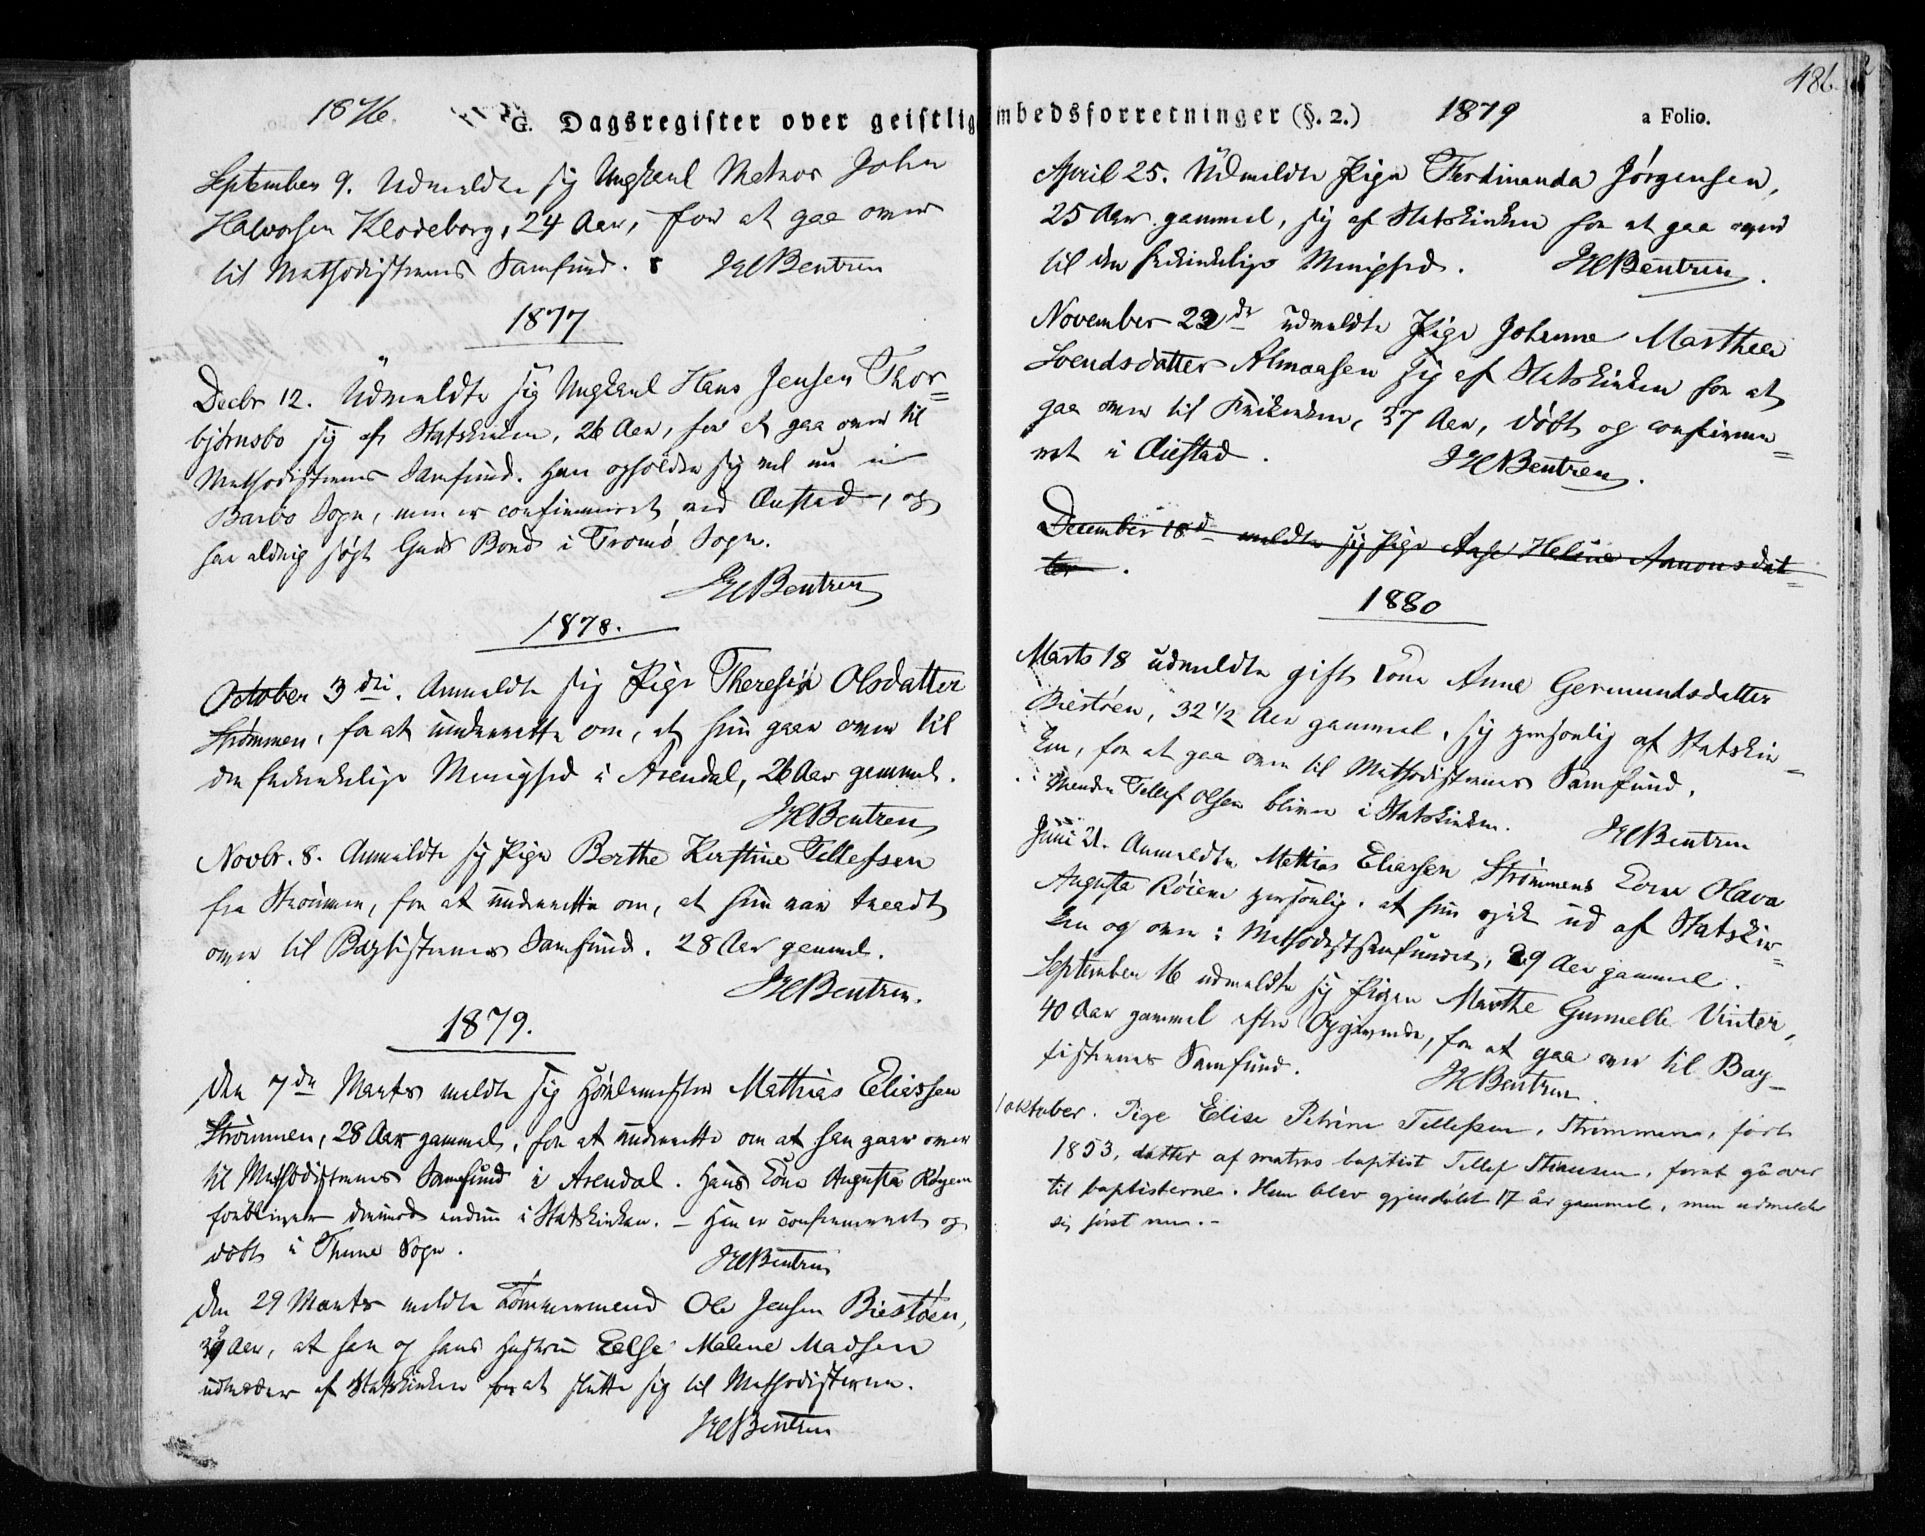 1876.
G. Dagsregister over geistlig
September 9. Udmeldte sig Ungkarl Matros John
Halvorsen Klodeborg, 24 Aar, for at gaa over
til Methodisternes Samfund. JHBentzen
1877
Decbr 12. Udmeldte sig Ungkarl Hans Jensen Thor-
bjørnsbo sig af Statskirken, 26 Aar, for at gaa over til
Methodisternes Samfund. Han opholder sig vel nu i
Barbo Sogn, men er confirmeret ved Øiestad, og
har aldrig søgt Guds Bord i Tromø Sogn.
JHBentzen
1878.
October 3die. Anmeldte sig Pige Theresia Olsdatter
Strømmen, for at underrette om, at hun gaar over til
den frikirkelige Menighed i Arendal, 26 Aar gammel.
JHBentzen
Novbr. 8. Anmeldte sig Pige Berthe Kirstine Tellefsen
fra Strømmen, for at underrette om, at hun var traadt
over til Baptisternes Samfund. 28 Aar gammel.
JHBentzen.
1879.
Den 7de Marts meldte sig Mathias Eliassen
Strømmen, 28 Aar gammel, for at underrette om at han gaar over
til Methodisternes Samfund i Arendal. Hans Kone Augusta Røyem
forbliver derimod endnu i Statskirken. – Han er confirmeret og
døbt i Sogn.
JHBentzen
Den 29 Marts meldte Tømmermand Ole Jensen Biestøen,
39 Aar, at han og hans Hustru Else Malene Madsen
udtræder af Statskirken for at slutte sig til Methodisterne.
JHBentzen
486
mbedsforretninger (§. 2.) 1879 a Folio.
April 25. Udmeldte Pige Ferdinanda Jørgensen,
25 Aar gammel, sig af Statskirken for at gaa over
til den frikirkelige Menighed. JHBentzen.
November 22de udmeldte Pige Johanne Marthea
Svendsdatter Almaasen sig af Statskirken for at
gaa over til Frikirken, 37 Aar, døbt og confirme-
ret i Øiestad. JHBentzen.
December 18d meldte sig Pige Aase Helene Aanonsdat-
ter.
1880
Marts 18 udmeldte gift Kone Anne Germundsdatter
Biestøen, 32 1/2 Aar gammel, sig personlig af Statskir-
ken, for at gaa over til Methodisternes Samfund.
Manden Tellef Olsen bliver i Statskirken. JHBentzen
Juni 21. Anmeldte Mathias Eliassen Strømmens Kone Olava
Augusta Røiem personlig, at hun gik ud af Statskir-
ken og over i Methodistsamfundet, 29 Aar gammel.
September 16 udmeldte sig Pigen Marthe Gunnelle Vinter,
40 Aar gammel efter Opgivende, for at gaa over til Bap-
tisternes Samfund. JHBentzen.
1 oktober. Pige Elise Petrine Tellefsen, Strømmen, født
1853, datter af matros baptist Tellef, forat gå over
til baptisterne. Hun blev gjendøbt 17 år gammel, men udmelder
sig først nu. –